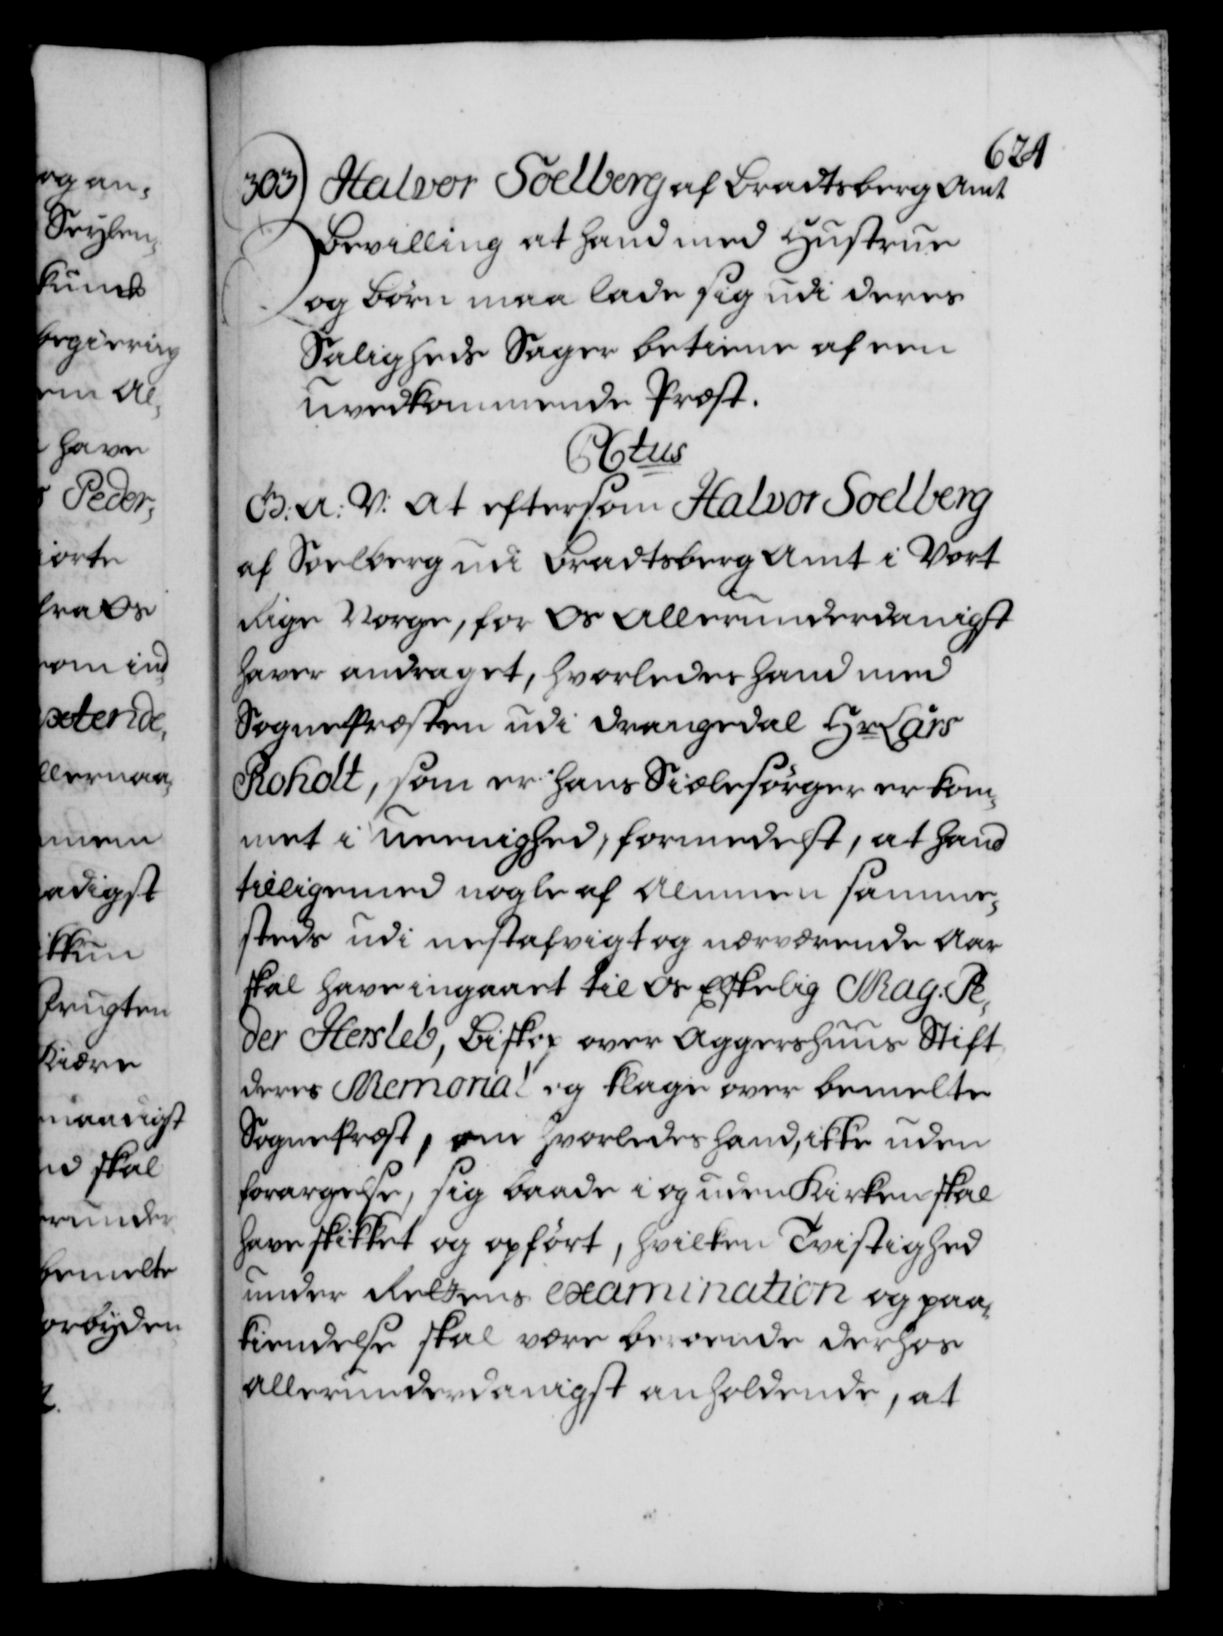 624
303) Halvor Soelberg af Bradtsberg Amt
Bevilling at hand med Hustrue
og Børn maa lade sig udi deres
Saligheds Sager betiene af een
uvedkommende Præst.
C 6tus
G. A. V. At eftersom Halvor Soelberg
af Soelberg udi Bradtsberg Amt i Vort
Rige Norge, for Os Allerunderdanigst
haver andraget, hvorledes hand med
SognePræsten udi Drangedal Hr Lars
Roholt, som er hans Siælesørger er kom-
met i ueenighed, formedelst, at hand
tilligemed nogle af Almuen samme-
steds udi nestafvigt og nærværende Aar
skal have ingaaet til Os Elskelig Mag. Pe-
der Hersleb, Biskop over Aggershuus Stift
deres Memorial og klage over bemelte
SognePræst, om hvorledes hand, ikke uden
forargelse, sig baade i og uden Kirken skal
have skikket og opført, hvilken Tvistighed
under Rettens examination og paa-
kiendelse skal være beroende derhos
allerunderdanigst anholdende, at
og an-
Seylen-
begiering
em Al-
have
Peder-
iorte
fra Os
som ind
petende,
llernaa-
adigst
frugten
Kiære
maadigst
d skal
erunder
bemelte
orbyden